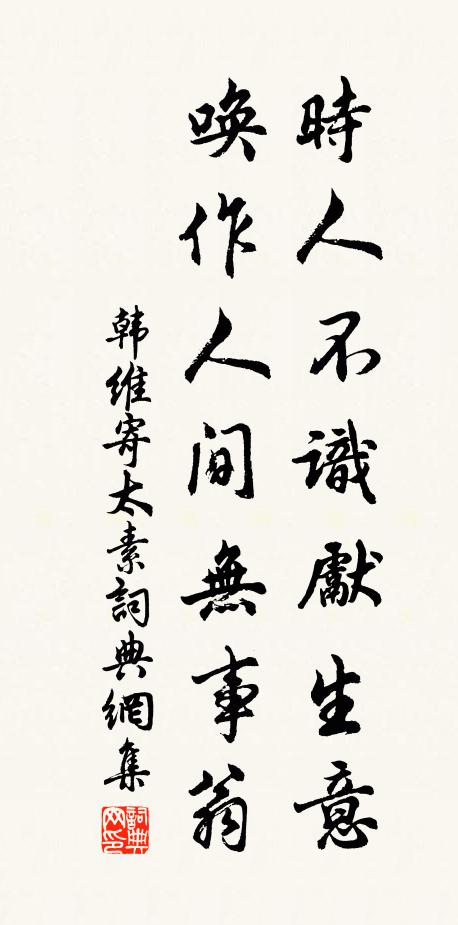 時人不識獻生意
喚作人間無事翁
韩維寄太素詞典網集
詞典網印